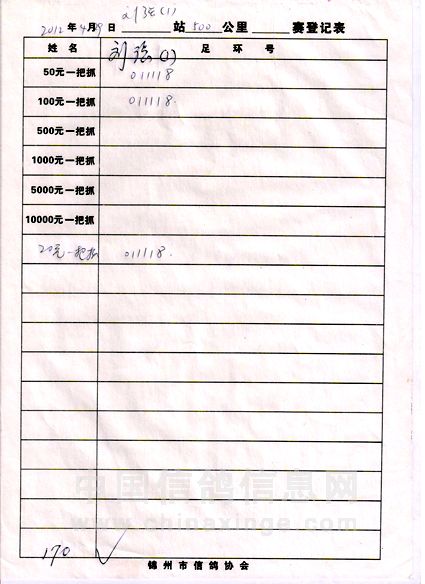 刘强(1)
2012年4月29日 站500公里 赛登记表
姓名 足环号
刘强(1)
50元一把抓 011118
100元一把抓 011118.
500元一把抓
1000元一把抓
5000元一把抓
10000元一把抓
20元一把抓 011118.
中国信鸽信息网
www.chinaxinge.com
170 √
锦州市信鸽协会